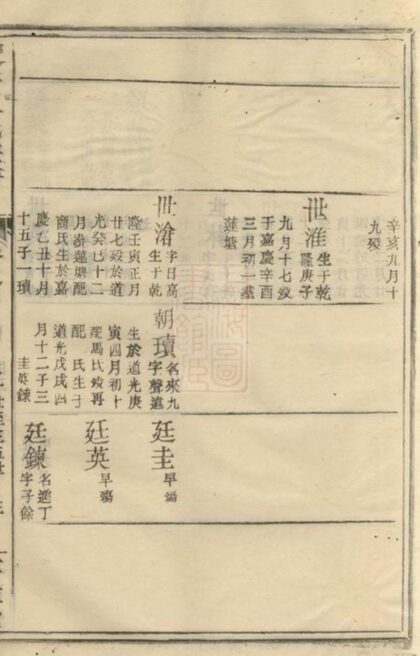 辛亥九月十
九歿
世淮 生于乾
隆庚子
九月十七歿
于嘉慶辛酉
三月初一墓
蓮塘
世滄 字日高
生于乾
隆壬寅正月
廿七歿於道
光癸巳十二
月葬蓮塘配
商氏生於嘉
慶乙丑十月
十五子一瓆
朝瓆 名來九
字聲遠
生於道光庚
寅四月初十
配馬氏歿再
配 氏生于
道光戊戌四
月十二子三
圭英鍊
廷圭 早殤
廷英 早殤
廷鍊 名進丁
字子餘